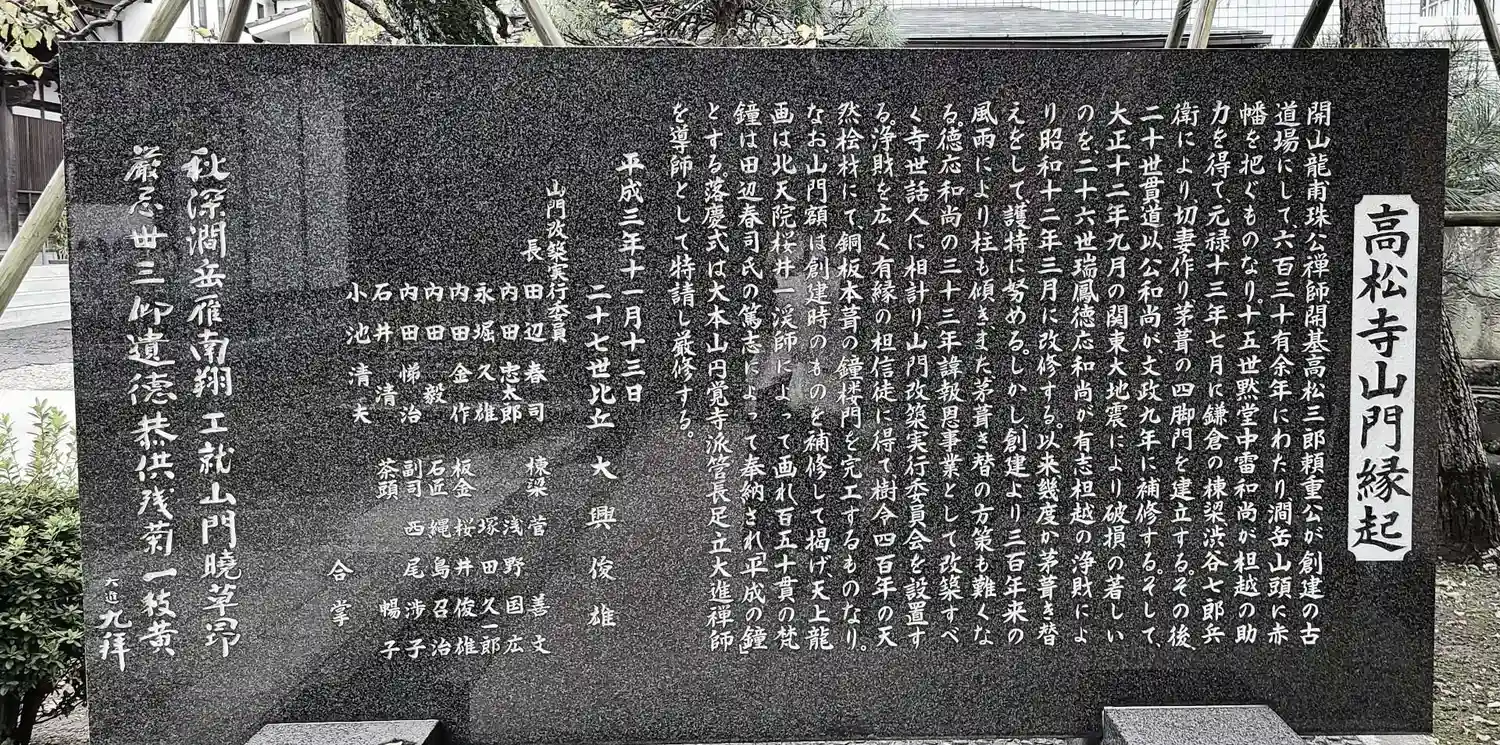 高松寺山門縁起
開山龍甫珠公禅師開基高松三郎頼重公が創建の古
道場にして、六百三十有余年にわたり澗岳山頭に赤
幡を把ぐものなり。十五世黙堂中雷和尚が担越の助
力を得て、元禄十三年七月に鎌倉の棟梁渋谷七郎兵
衛により切妻作り茅葺の四脚門を建立する。その後、
二十世貫道以公和尚が文政九年に補修する。そして、
大正十二年九月の関東大地震により破損の著しい
のを、二十六世瑞鳳徳応和尚が有志担越の浄財によ
り昭和十二年三月に改修する。以来幾度か茅葺き替
えをして、護特に努める。しかし、創建より三百年来の
風雨により柱も傾き、また茅葺き替の方策も難くな
る。徳応和尚の三十三年諱報恩事業として改築すべ
く寺世話人に相計り、山門改築実行委員会を設置す
る。浄財を広く有縁の担信徒に得て樹令四百年の天
然桧材にて、銅板本葺の鐘楼門を完工するものなり。
なお山門額は創建時のものを補修して掲げ、天上龍
画は北天院桜井一渓師によって画れ百五十貫の梵
鐘は田辺春司氏の篤志によって奉納され「平成の鐘」
とする。落慶式は大本山円覚寺派管長足立大進禅師
を導師として特請し厳修する。
平成三年十一月十三日
二十七世比丘 大興俊雄
山門改築実行委員
長 田辺春司 棟梁 菅善文
内田志太郎 浅野国広
永堀久雄 塚田久一郎
内田金作 板金 桜井俊雄
内田毅 石匠 縄島召治
内田悌治 副司 西尾渉子
石井清 茶頭 暢子
小池清夫
合掌
秋深澗岳雁南翔工就山門曉草昻
厳忌丗三仰遺徳恭供残菊一枝黄
大進九拝